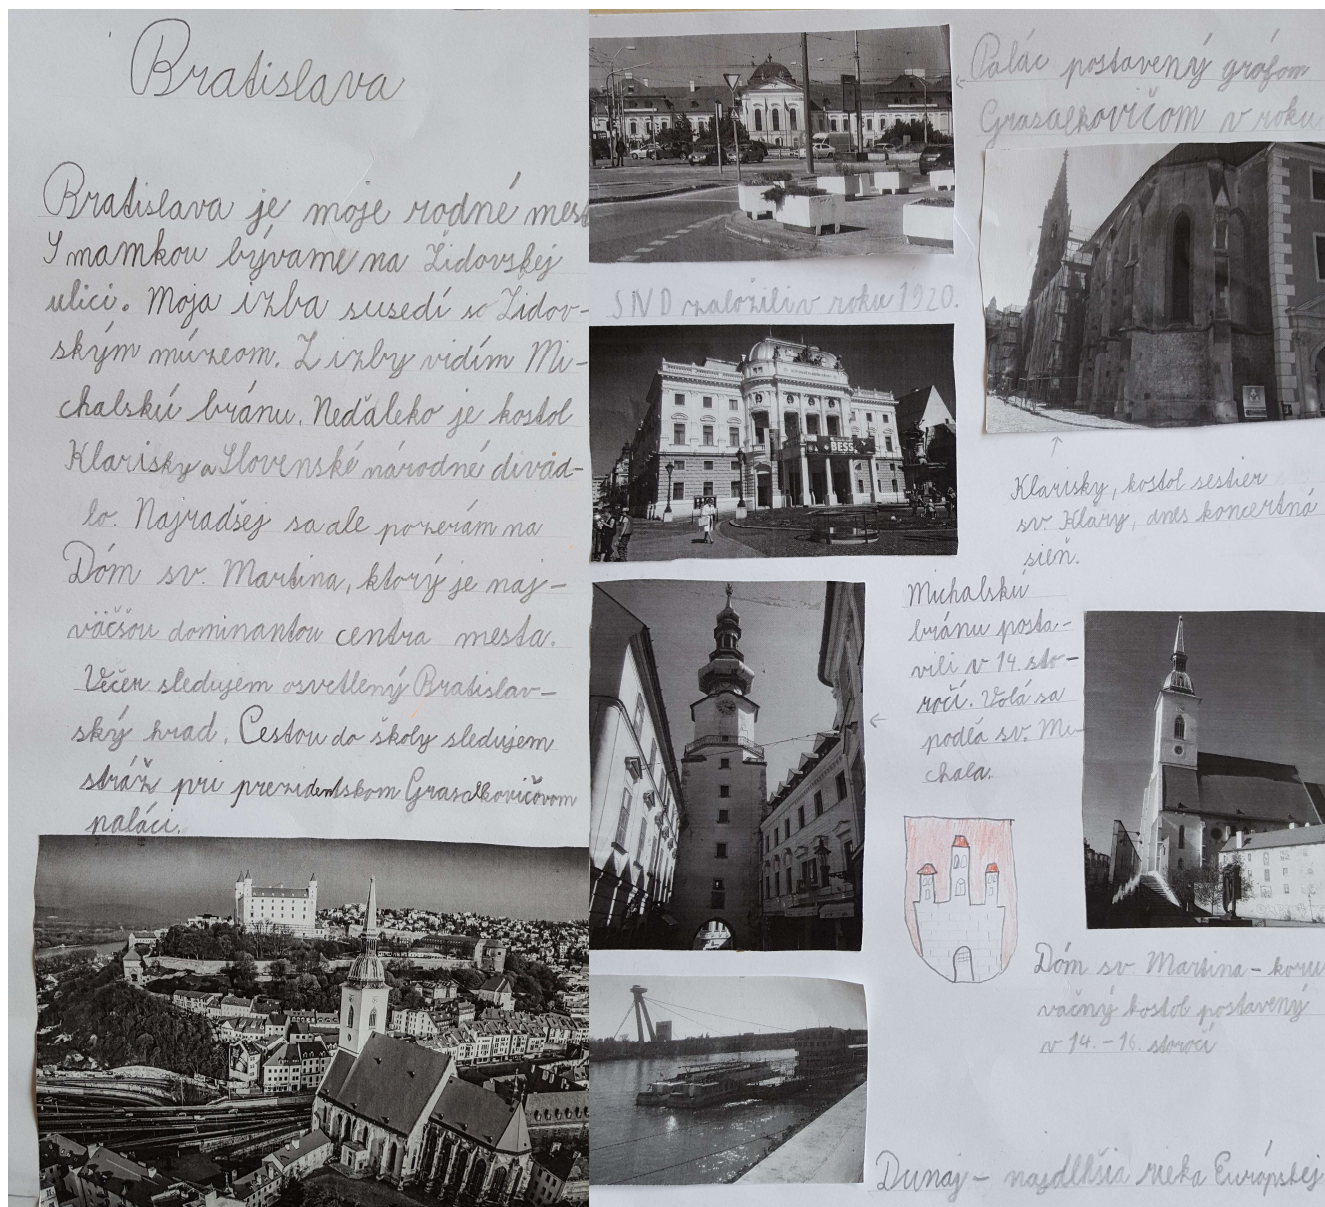 Bratislava
Bratislava je moje rodné mest
S mamkou bývame na Židovskej
ulici. Moja izba susedí so Židov-
ským múzeom. Z izby vidím Mi-
chalskú bránu. Neďaleko je kostol
Klarisky a Slovenské národné divad-
lo. Najradšej sa ale pozerám na
Dóm sv. Martina, ktorý je naj-
väčšou dominantou centra mesta.
Večer sledujem osvetlený Bratislav-
ský hrad. Cestou do školy sledujem
stráž pri prezidentskom Grasalkovičovom
paláci.
Palác postavený grófom
Grasalkovičom v roku
SND založili v roku 1920.
BESS
Klarisky, kostol sestier
sv. Klary, dnes koncertná
sieň.
Michalskú
bránu posta-
vili v 14. sto-
ročí. Volá sa
podľa sv. Mi-
chala.
Dóm sv. Martina - koru
vačný kostol postavený
v 14. - 16. storočí
Dunaj - najdlhšia rieka Európskej